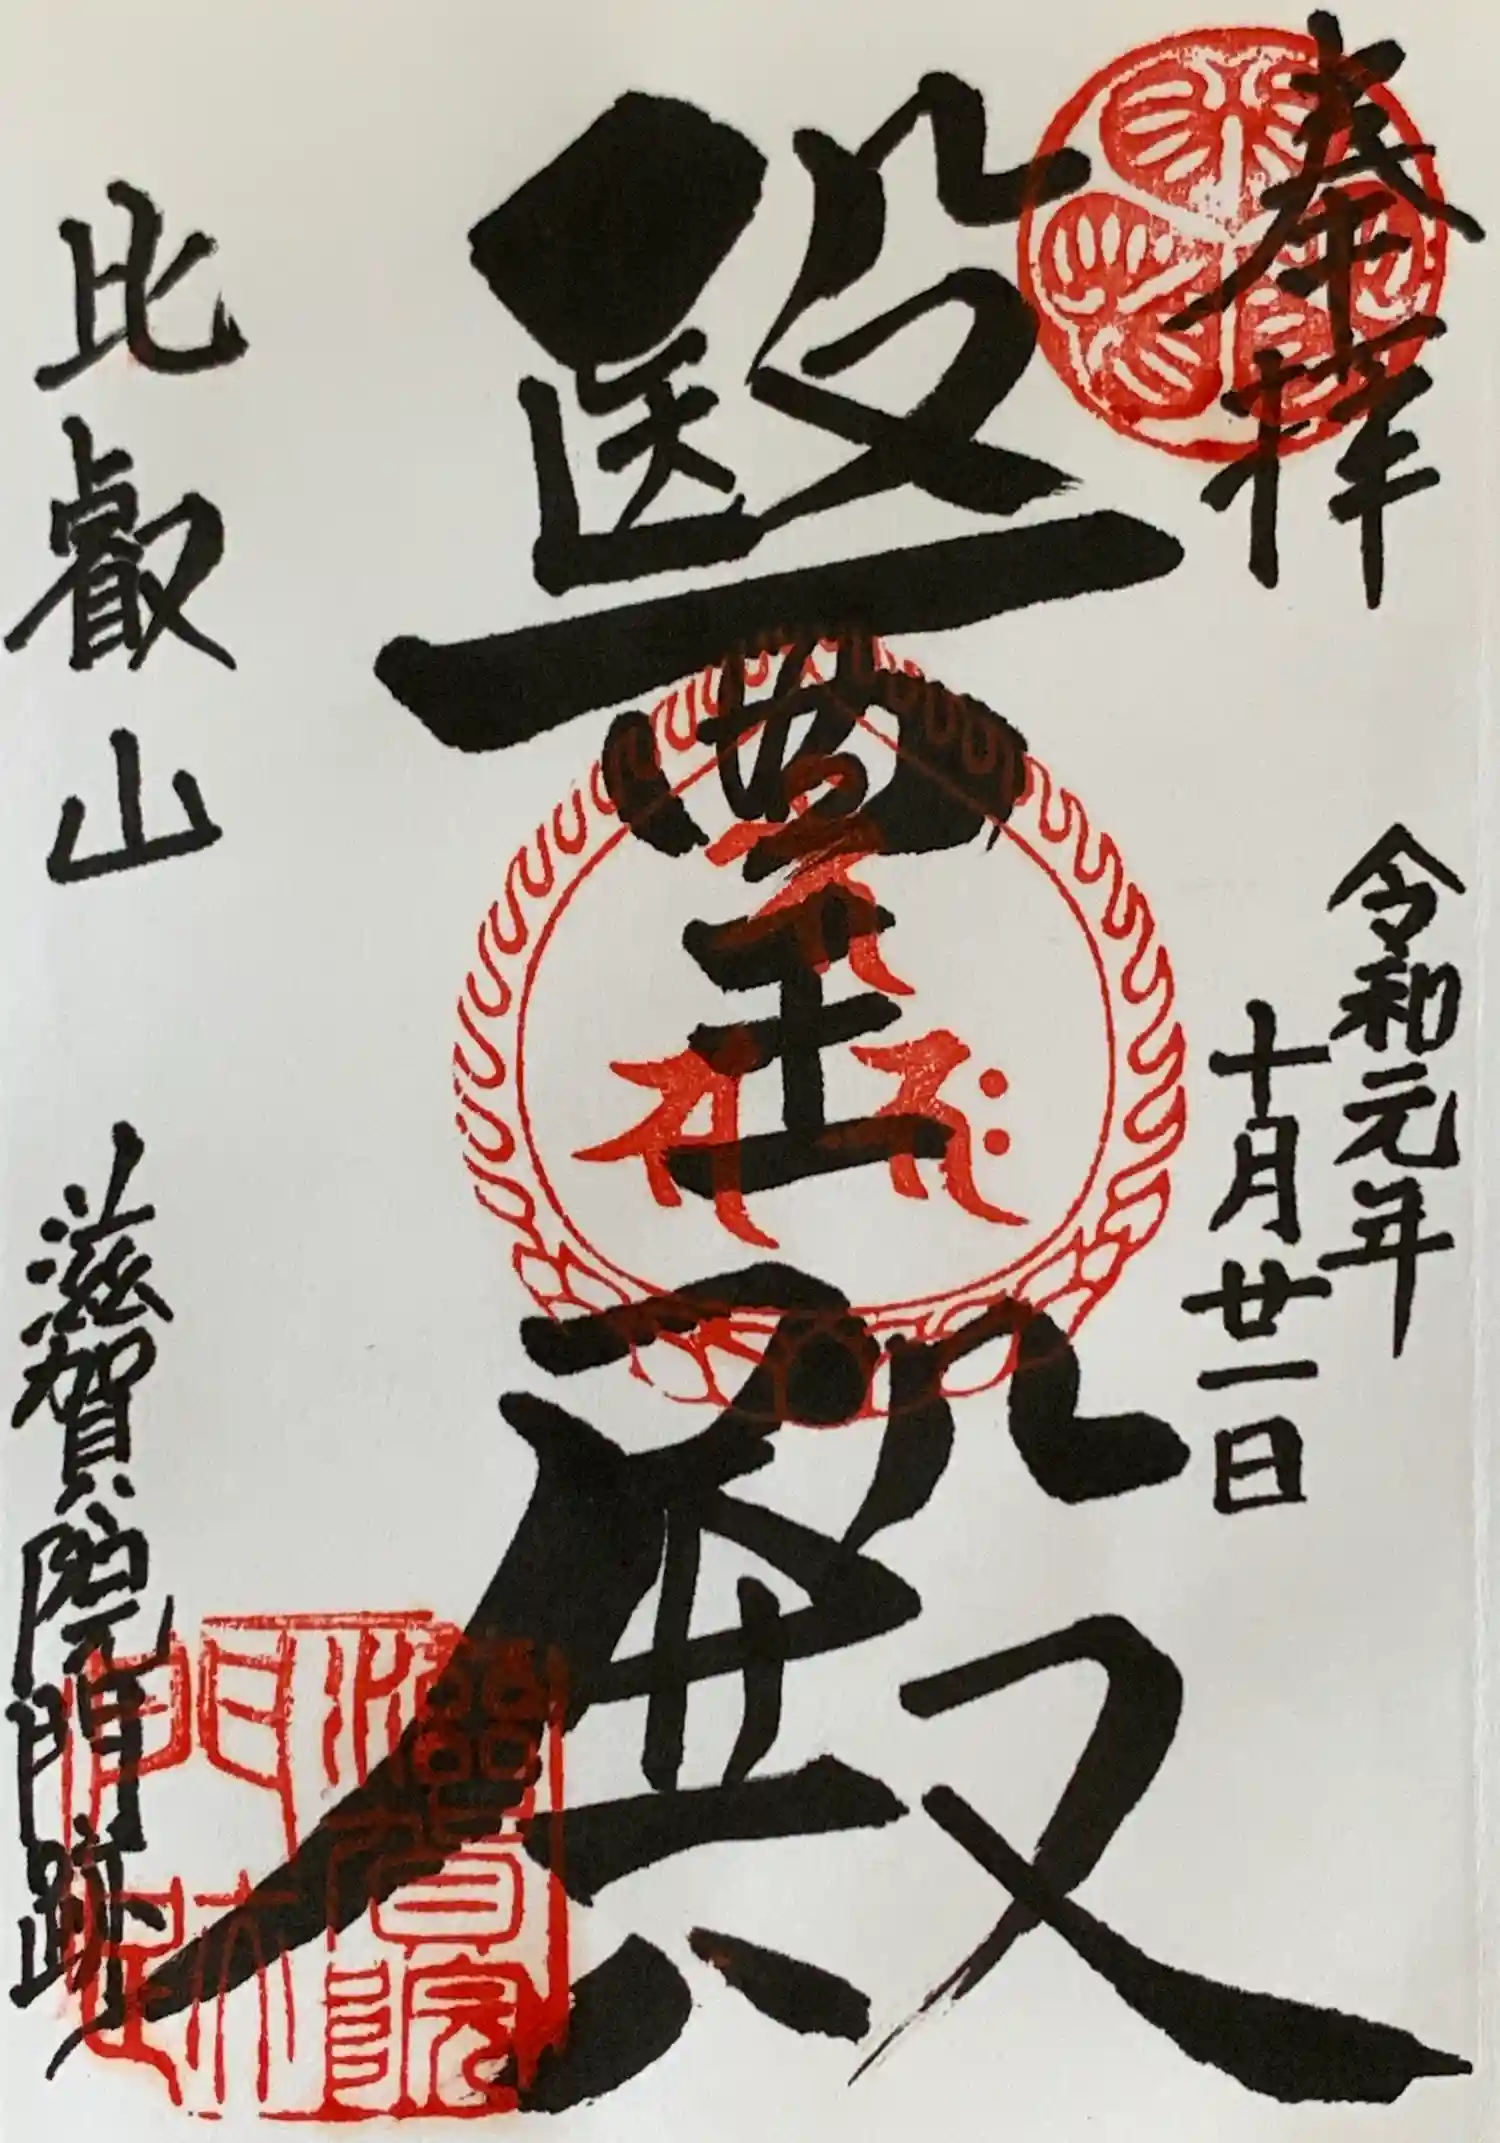 奉拝
令和元年
十月廿一日
醫王殿
比叡山
滋賀院門跡
滋賀院
門跡